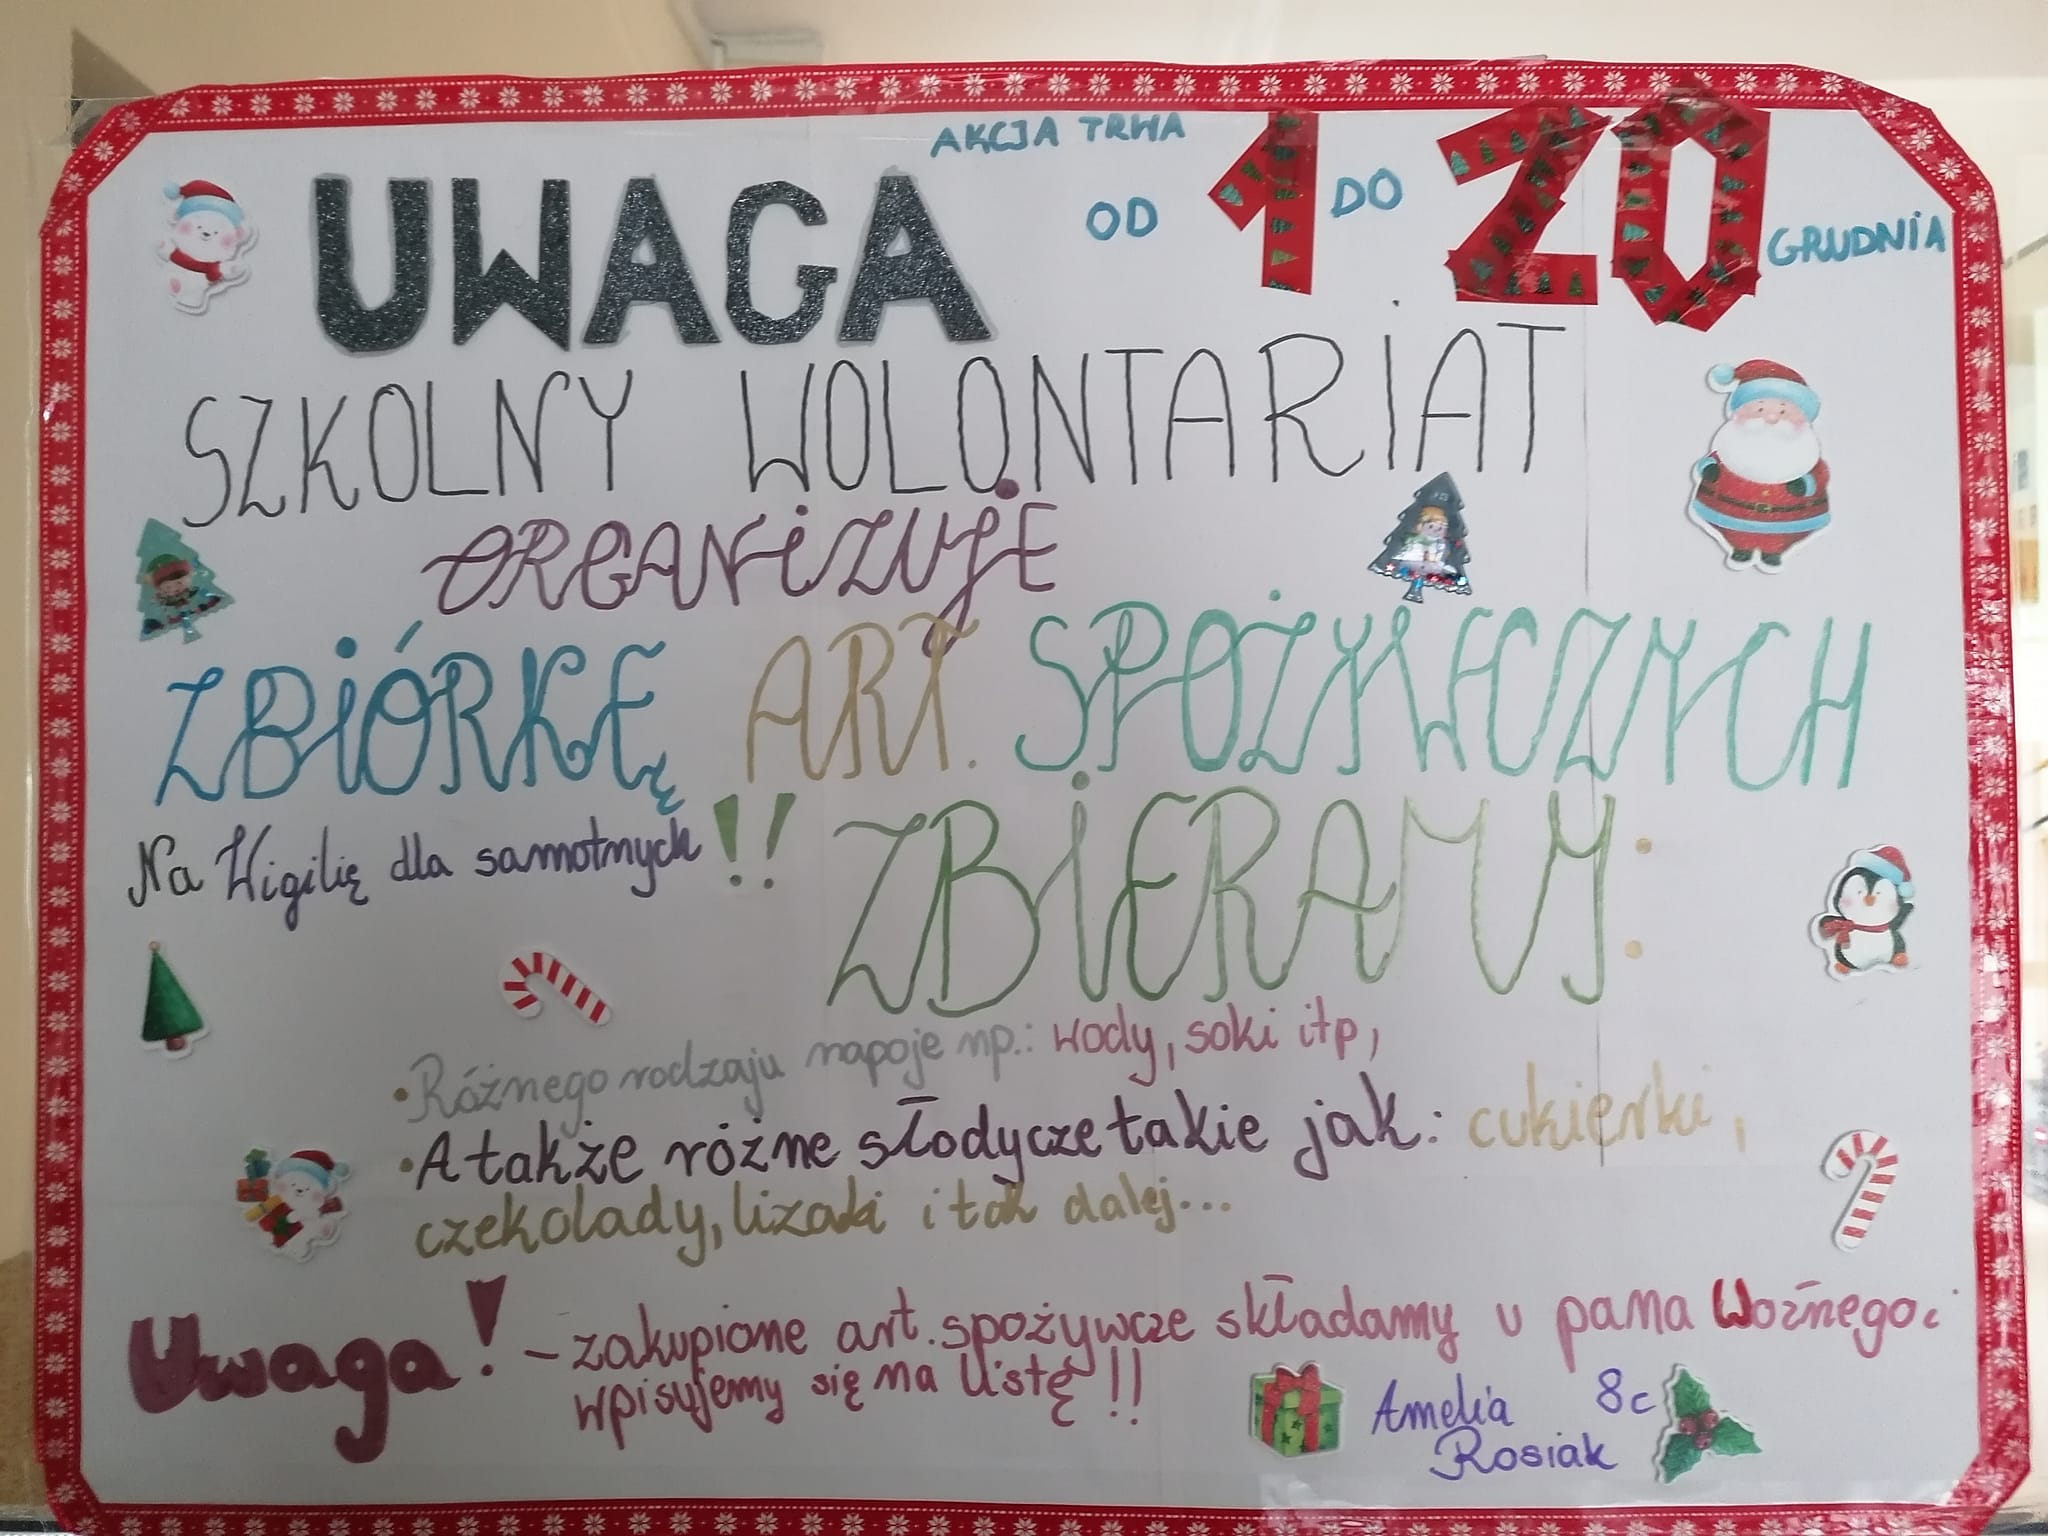 AKCJA TRWA
UWAGA OD 1 DO 20 GRUDNIA
SZKOLNY WOLONTARIAT
ORGANIZUJE
ZBIÓRKĘ ART. SPOŻYWCZYCH
Na Wigilię dla samotnych!! ZBIERAMY:
• Różnego rodzaju napoje np.: wody, soki itp,
• A także różne słodycze takie jak: cukierki,
czekolady, lizaki i tak dalej...
Uwaga! – zakupione art. spożywcze składamy u pana Woźnego i
wpisujemy się na listę!!
Amelia 8c
Rosiak